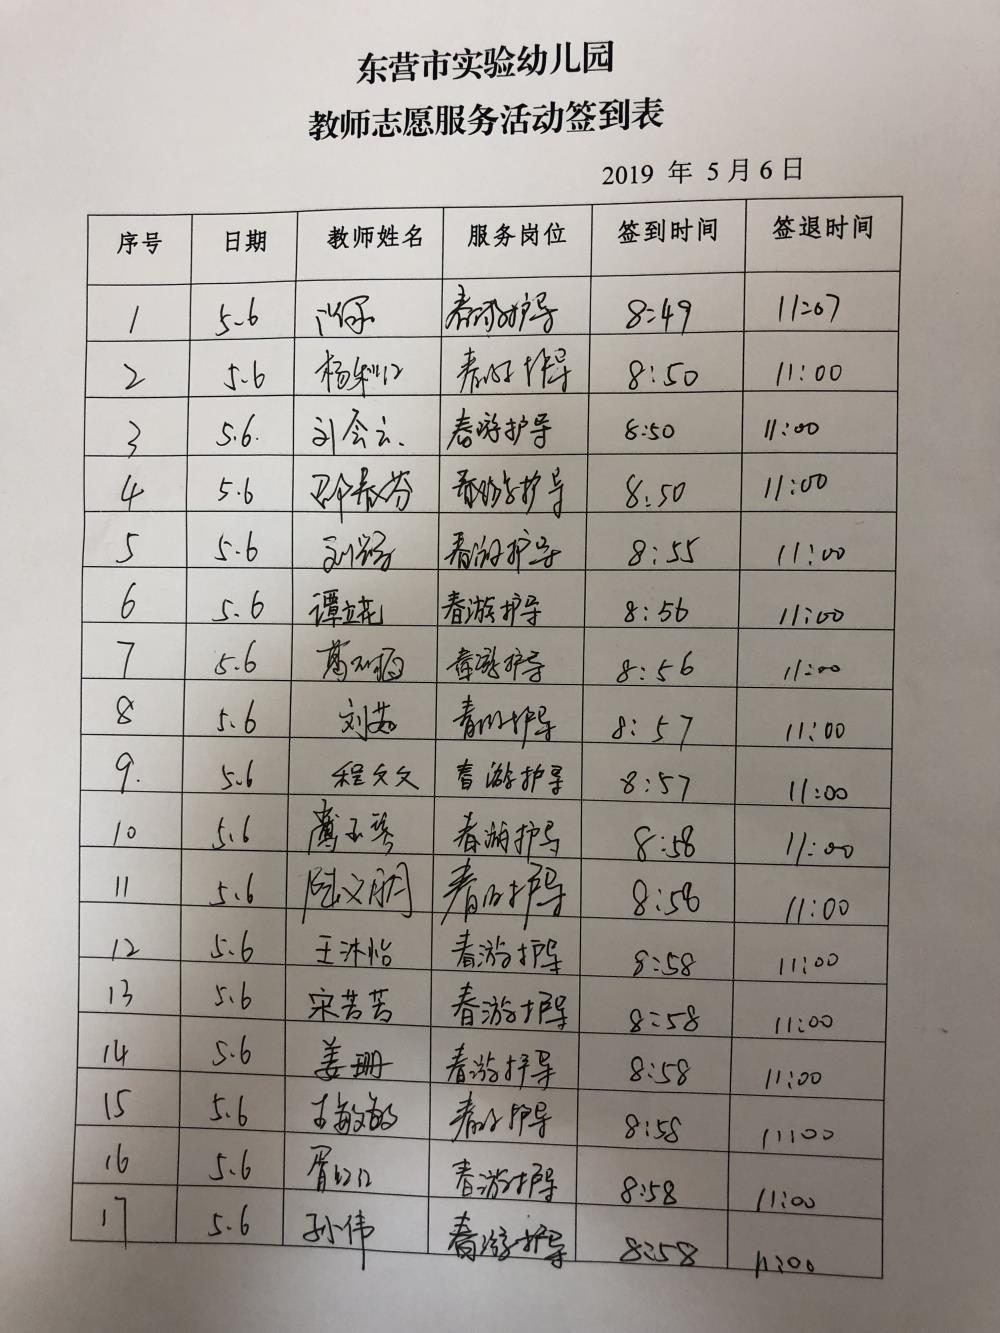 东营市实验幼儿园
教师志愿服务活动签到表
2019 年 5 月 6 日
序号 日期 教师姓名 服务岗位 签到时间 签退时间
1 5.6 春游护导 8:49 11:07
2 5.6 春游护导 8:50 11:00
3 5.6. 刘会云 春游护导 8:50 11:00
4 5.6 春游护导 8:50 11:00
5 5.6 春游护导 8:55 11:00
6 5.6 谭立花 春游护导 8:56 11:00
7 5.6 春游护导 8:56 11:00
8 5.6 刘茹 春游护导 8:57 11:00
9. 5.6 程文文 春游护导 8:57 11:00
10 5.6 春游护导 8:58 11:00
11 5.6 陆文 春游护导 8:58 11:00
12 5.6 王沐怡 春游护导 8:58 11:00
13 5.6 宋苦苦 春游护导 8:58 11:00
14 5.6 姜珊 春游护导 8:58 11:00
15 5.6 敏敏 春游护导 8:58 11:00
16 5.6 春游护导 8:58 11:00
17 5.6 孙伟 春游护导 8:58 11:00